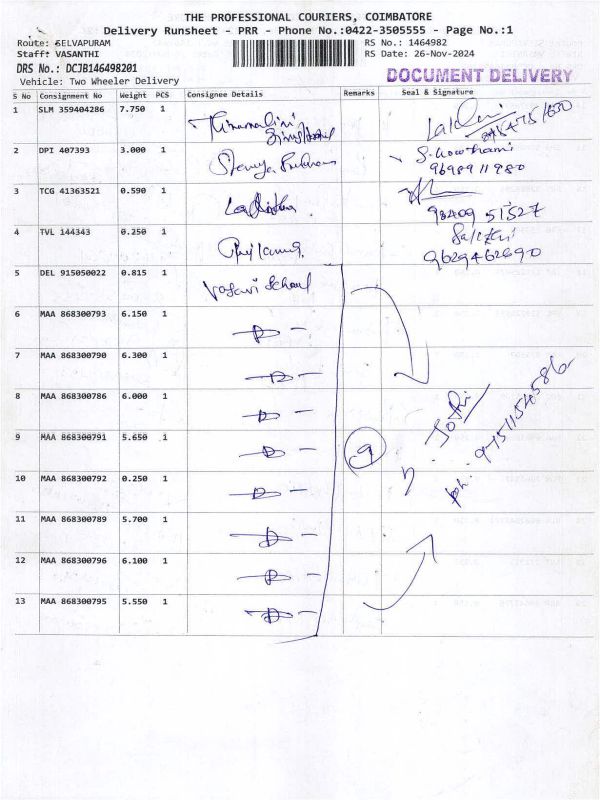 THE PROFESSIONAL COURIERS, COIMBATORE
Delivery Runsheet - PRR - Phone No.:0422-3505555 - Page No.:1
Route: SELVAPURAM
Staff: VASANTHI
DRS No.: DCJB146498201
Vehicle: Two Wheeler Delivery
RS No.: 1464982
RS Date: 26-Nov-2024
DOCUMENT DELIVERY
S No Consignment No Weight PCS Consignee Details Remarks Seal & Signature
1 SLM 359404286 7.750 1
2 DPI 407393 3.000 1 S. Gowthami
9698911980
3 TCG 41363521 0.590 1
98409 51527
4 TVL 144343 0.250 1
9629462690
5 DEL 915050022 0.815 1 Vasavi School
6 MAA 868300793 6.150 1
7 MAA 868300790 6.300 1
8 MAA 868300786 6.000 1
9 MAA 868300791 5.650 1 9
10 MAA 868300792 0.250 1
11 MAA 868300789 5.700 1
12 MAA 868300796 6.100 1
13 MAA 868300795 5.550 1
ph: 9751154586